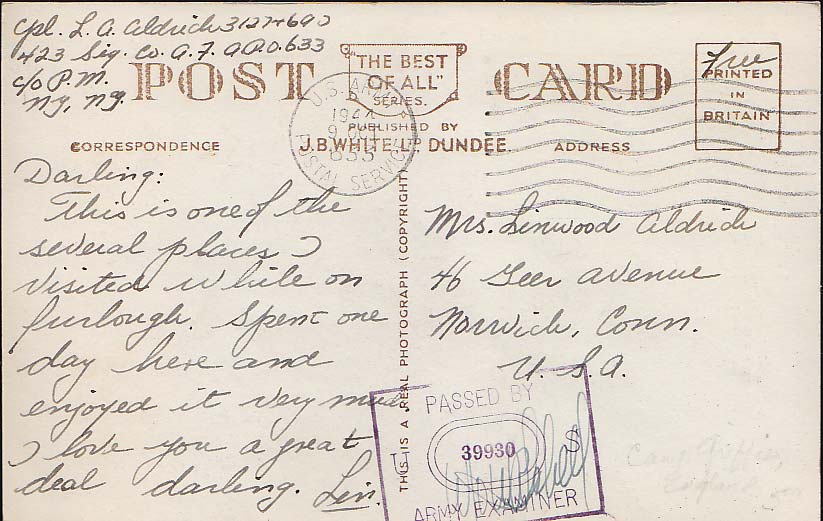 Cpl. L. A. Aldrich
423 Sig. Co. A.F. A.P.O. 633
c/o P.M.
NY, NY.
POST CARD
"THE BEST
OF ALL"
SERIES.
PUBLISHED BY
J.B.WHITE LD. DUNDEE.
Free
PRINTED
IN
BRITAIN
U.S. ARMY
1944
POSTAL SERVICE
CORRESPONDENCE
ADDRESS
Darling:
This is one of the
several places I
visited while on
furlough. Spent one
day here and
enjoyed it very much
I love you a great
deal darling. Lin.
THIS IS A REAL PHOTOGRAPH (COPYRIGHT)
Mrs. Linwood Aldrich
46 Geer Avenue
Norwich, Conn.
U. S. A.
PASSED BY
39930
S
ARMY EXAMINER
Camp Griffiss,
England